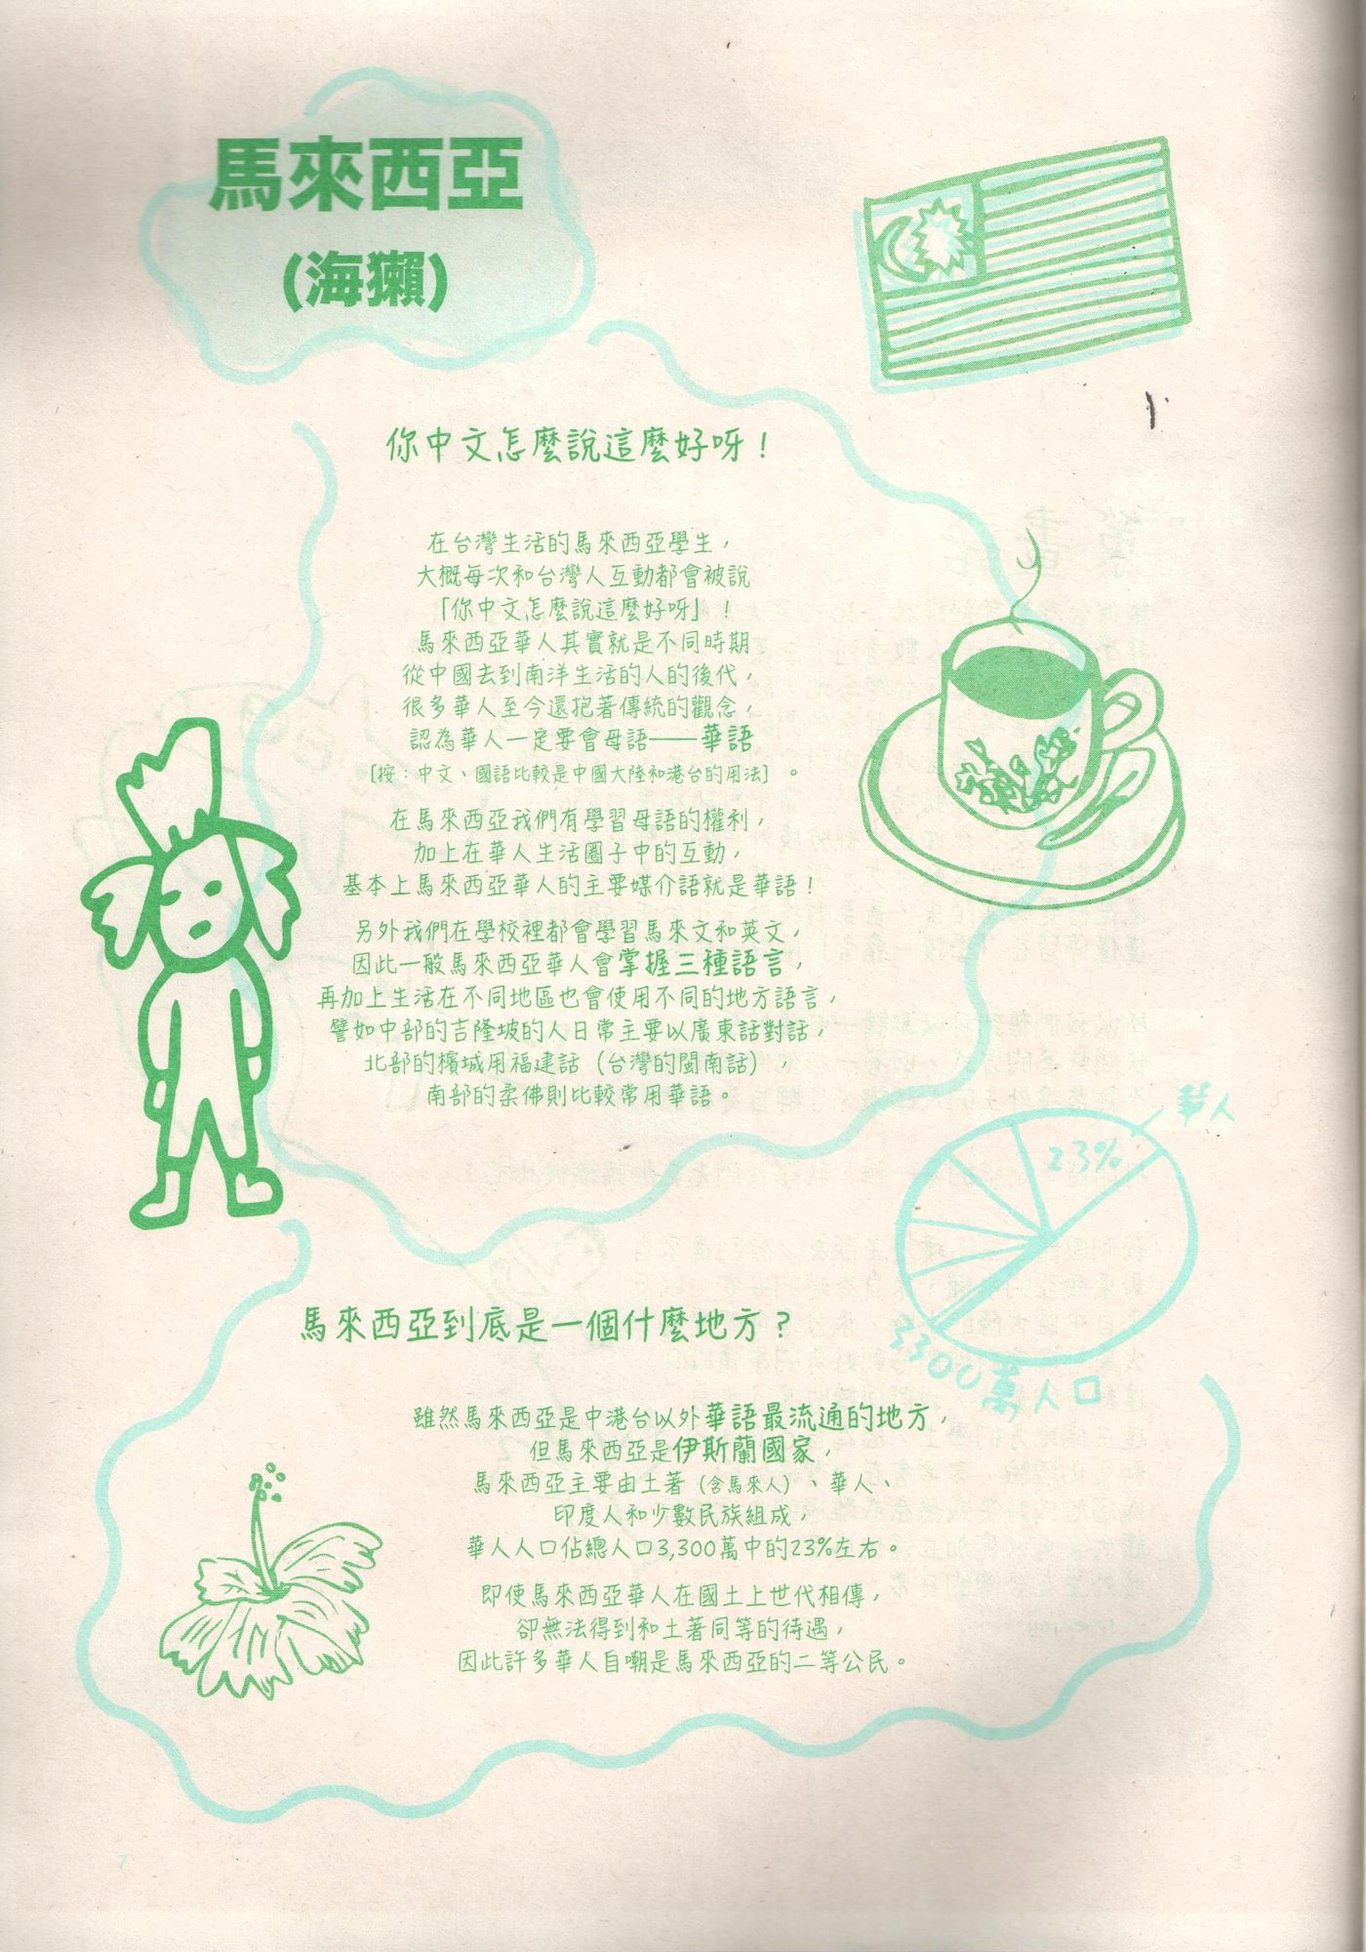 馬來西亞
(海獺)
你中文怎麼說這麼好呀！
在台灣生活的馬來西亞學生，
大概每次和台灣人互動都會被說
「你中文怎麼說這麼好呀」！
馬來西亞華人其實就是不同時期
從中國去到南洋生活的人的後代，
很多華人至今還抱著傳統的觀念，
認為華人一定要會母語——華語
［按：中文、國語比較是中國大陸和港台的用法］。
在馬來西亞我們有學習母語的權利，
加上在華人生活圈子中的互動，
基本上馬來西亞華人的主要媒介語就是華語！
另外我們在學校裡都會學習馬來文和英文，
因此一般馬來西亞華人會掌握三種語言，
再加上生活在不同地區也會使用不同的地方語言，
譬如中部的吉隆坡的人日常主要以廣東話對話，
北部的檳城用福建話（台灣的閩南話），
南部的柔佛則比較常用華語。
華人
23%
3300萬人口
馬來西亞到底是一個什麼地方？
雖然馬來西亞是中港台以外華語最流通的地方，
但馬來西亞是伊斯蘭國家，
馬來西亞主要由土著（含馬來人）、華人、
印度人和少數民族組成，
華人人口佔總人口3,300萬中的23%左右。
即使馬來西亞華人在國土上世代相傳，
卻無法得到和土著同等的待遇，
因此許多華人自嘲是馬來西亞的二等公民。
7